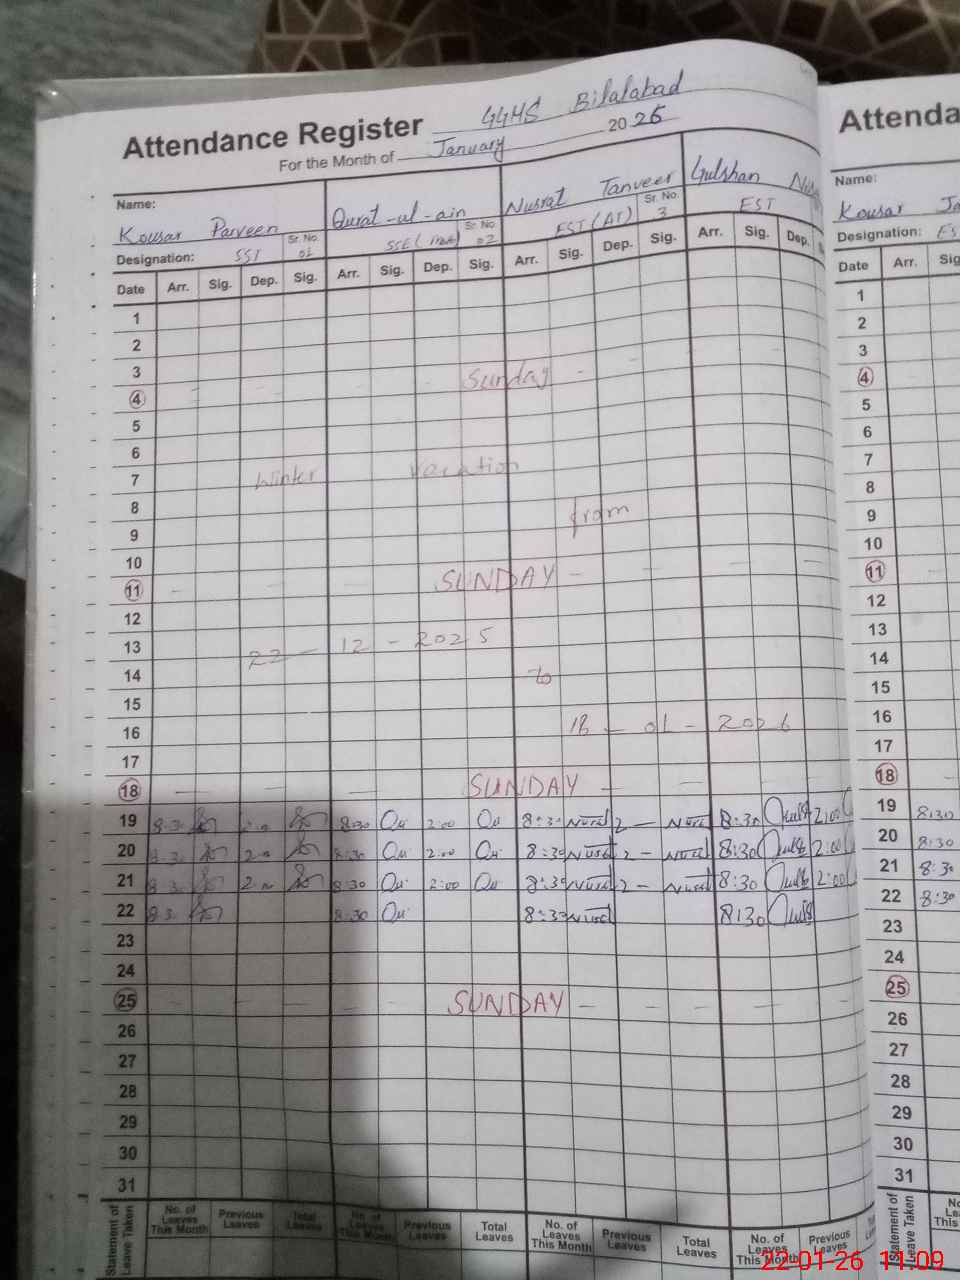 GGHS Bilalabad
Attendance Register
For the Month of January 2026
Name: Kousar Parveen
Designation: SST Sr. No. 01
Qurat-ul-ain
SSE( ) Sr. No. 02
Nusrat Tanveer
EST(AT) Sr. No. 3
Gulshan
EST
Date Arr. Sig. Dep. Sig. Arr. Sig. Dep. Sig. Arr. Sig. Dep. Sig. Arr. Sig. Dep.
1
2
3
4 Sunday
5
6
7 Winter vacation
8
9 from
10
11 SUNDAY
12
13 22-12-2025
14 to
15
16 18-01-2026
17
18 SUNDAY
19 8:30 2:00 8:30 Qu 2:00 Qu 8:30 2 - 8:30 2:00
20 8:30 2:00 8:30 Qu 2:00 Qu 8:30 2 - 8:30 2:00
21 8:30 2:00 8:30 Qu 2:00 Qu 8:30 2 - 8:30 2:00
22 8:30 8:30 Qu 8:30 8:30
23
24
25 SUNDAY
26
27
28
29
30
31
Statement of Leave Taken
No. of Leaves This Month Previous Leaves Total Leaves No. of Leaves This Month Previous Leaves Total Leaves No. of Leaves This Month Previous Leaves Total Leaves No. of Leaves This Month Previous Leaves
Attenda
Name:
Kousar
Designation: ES
Date Arr.
1
2
3
4
5
6
7
8
9
10
11
12
13
14
15
16
17
18
19 8:30
20 8:30
21 8:30
22 8:30
23
24
25
26
27
28
29
30
31
Statement of Leave Taken
22-01-26 11:09